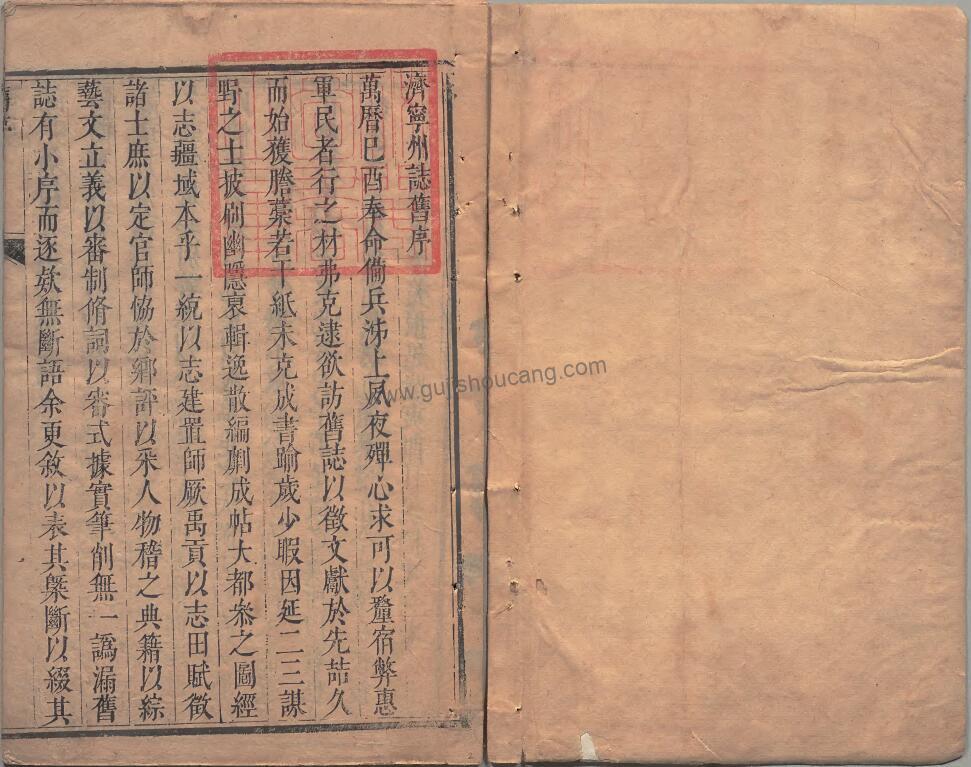 濟寧州誌舊序
萬曆己酉奉命僃兵泲上夙夜殫心求可以釐宿弊惠
軍民者行之材弗克逮欲訪舊誌以徵文獻於先喆久
而始獲謄藁若干紙未克成書踰歲少暇因延二三謀
野之士披刷幽隱裒輯逸散編劘成帖大都叅之圖經
以志疆域本乎一統以志建置師厥禹貢以志田賦徵
諸士庶以定官師協於鄉評以采人物稽之典籍以綜
藝文立義以審制脩詞以審式據實筆削無一譌漏舊
誌有小序而逐欵無斷語余更敘以表其槩斷以綴其
www.gujishoucang.com